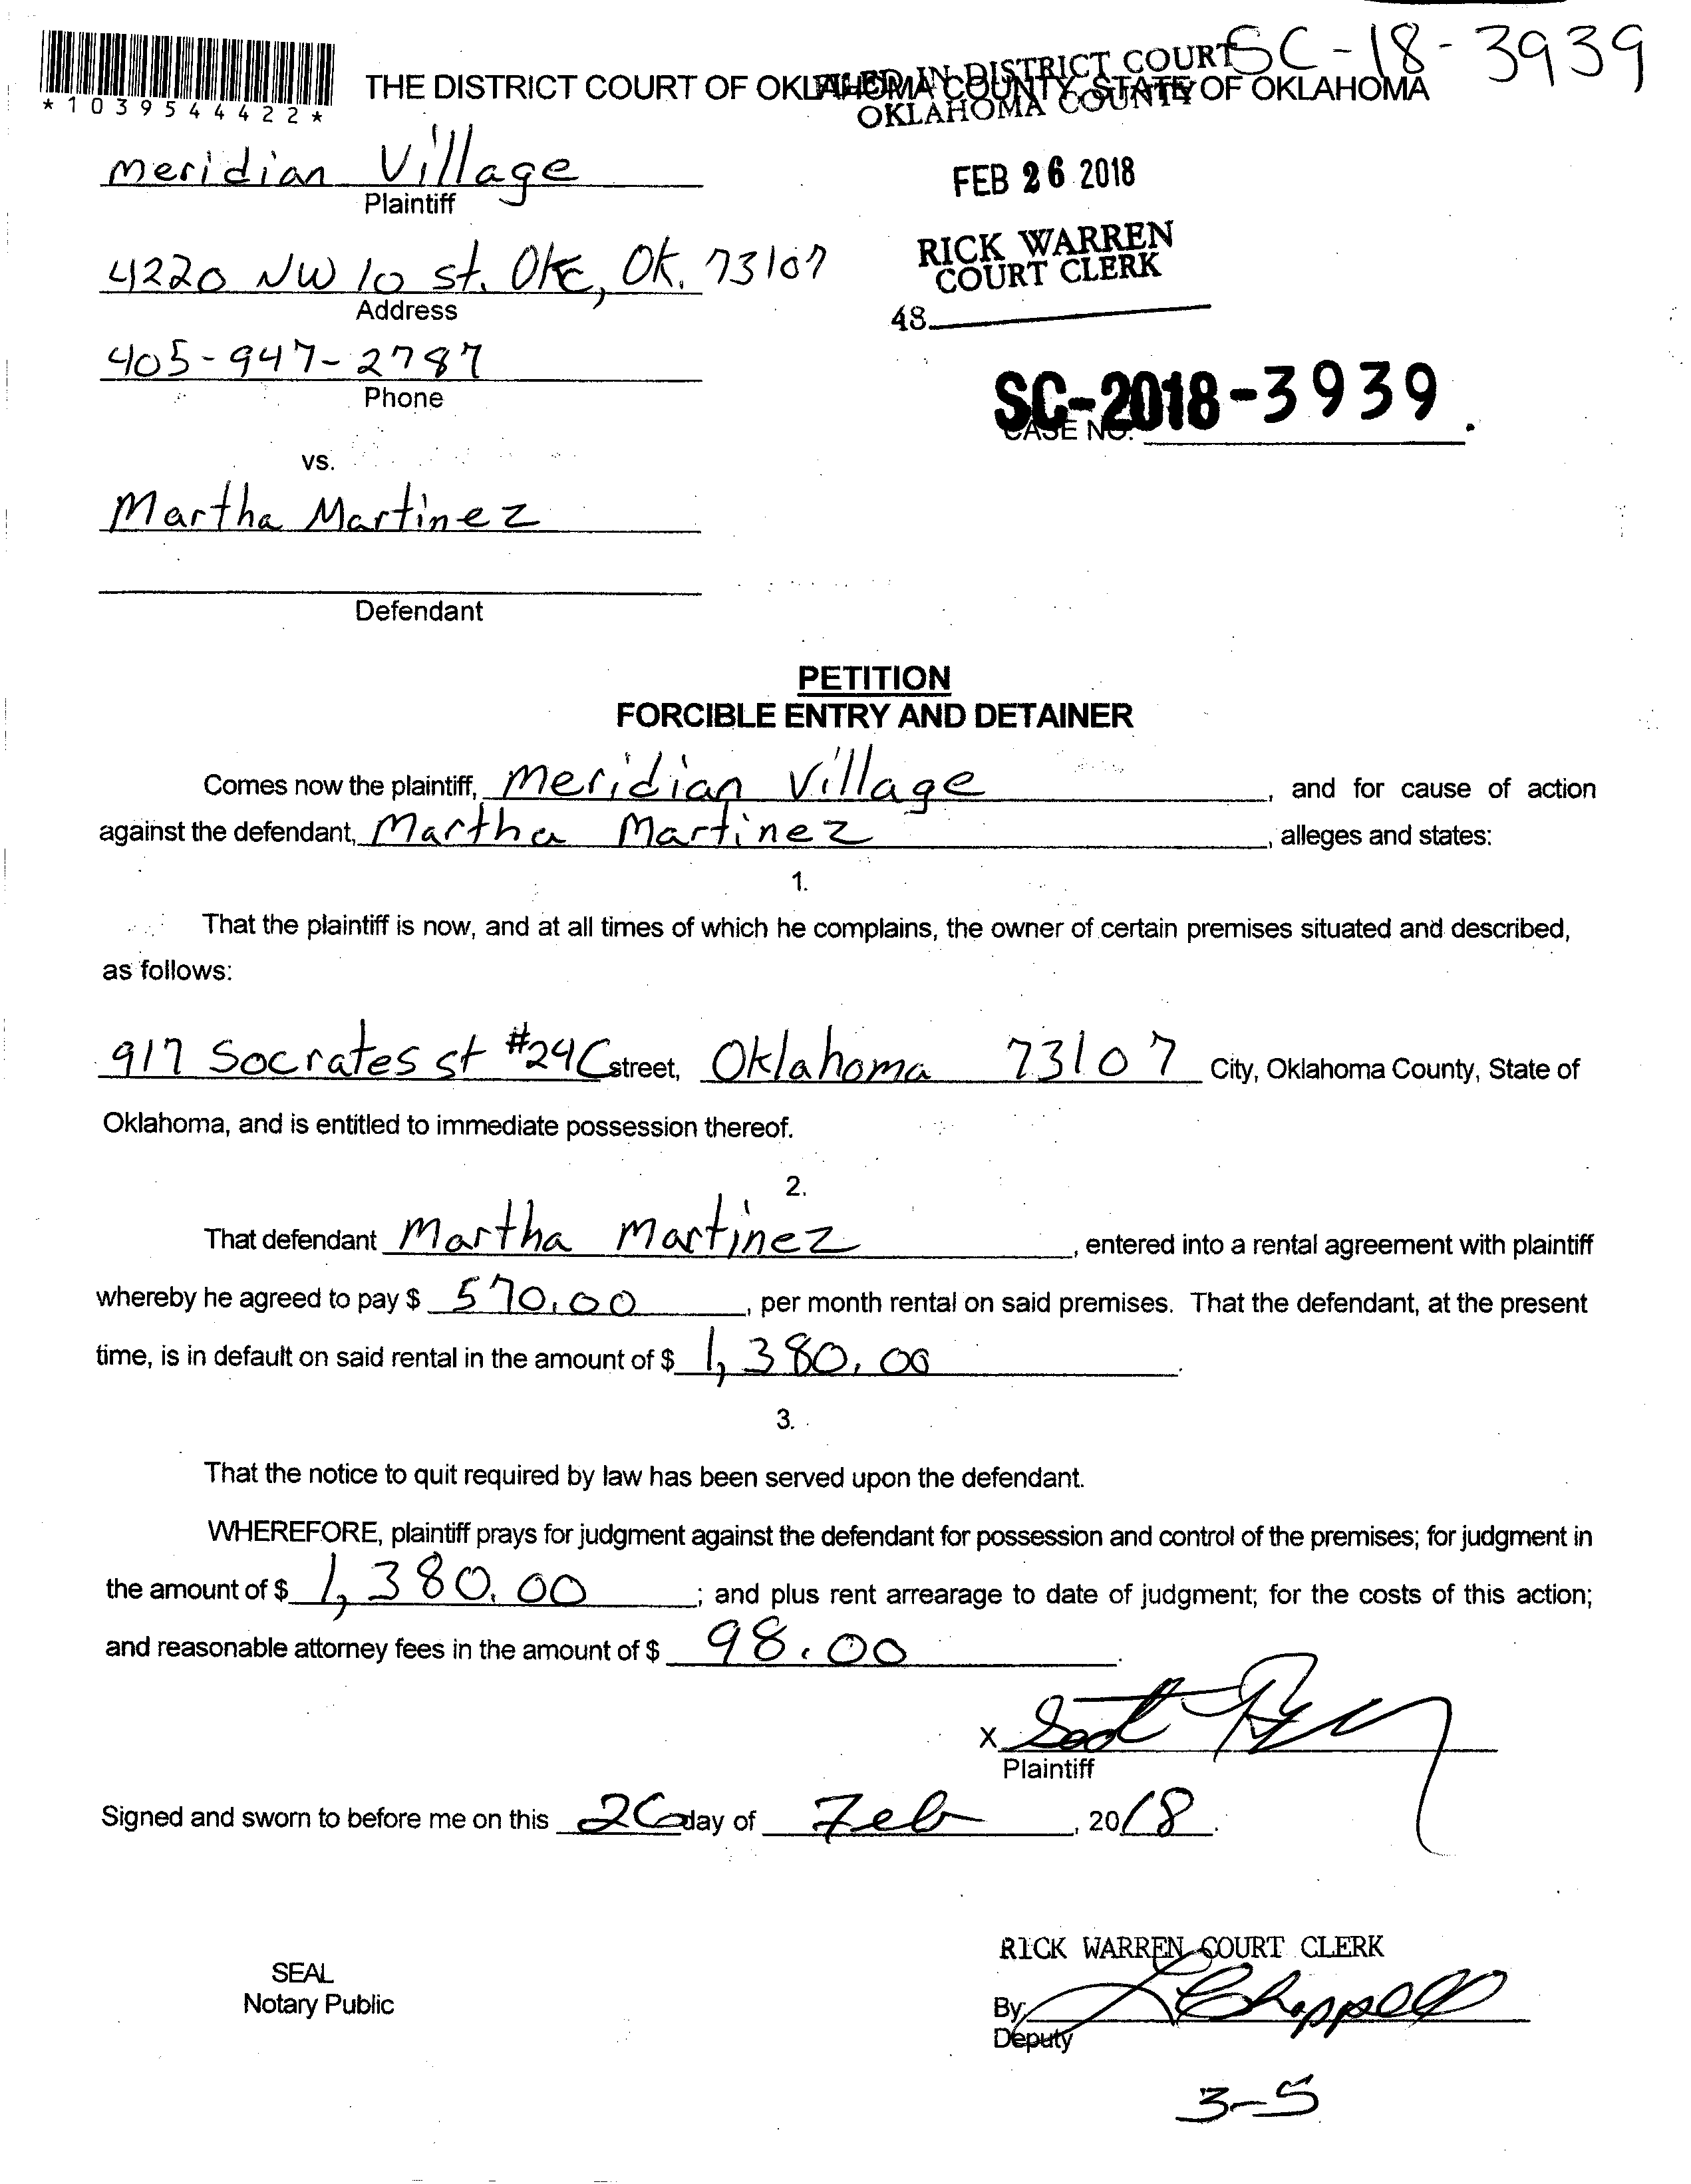 SC-18-3939
*1039544422*
THE DISTRICT COURT OF OKLAHOMA COUNTY, STATE OF OKLAHOMA
FILED IN DISTRICT COURT
OKLAHOMA COUNTY
meridian Village
Plaintiff
FEB 26 2018
RICK WARREN
COURT CLERK
48
4220 NW 10 st. OKC, OK. 73107
Address
405-947-2787
Phone
SC-2018-3939
CASE NO.
vs.
Martha Martinez
Defendant
PETITION
FORCIBLE ENTRY AND DETAINER
Comes now the plaintiff, meridian Village, and for cause of action
against the defendant, Martha Martinez, alleges and states:
1.
That the plaintiff is now, and at all times of which he complains, the owner of certain premises situated and described,
as follows:
917 Socrates st #24C street, Oklahoma 73107 City, Oklahoma County, State of
Oklahoma, and is entitled to immediate possession thereof.
2.
That defendant Martha Martinez, entered into a rental agreement with plaintiff
whereby he agreed to pay $ 570.00, per month rental on said premises. That the defendant, at the present
time, is in default on said rental in the amount of $ 1,380.00.
3.
That the notice to quit required by law has been served upon the defendant.
WHEREFORE, plaintiff prays for judgment against the defendant for possession and control of the premises; for judgment in
the amount of $ 1,380.00; and plus rent arrearage to date of judgment; for the costs of this action;
and reasonable attorney fees in the amount of $ 98.00.
X
Plaintiff
Signed and sworn to before me on this 26 day of Feb, 2018.
RICK WARREN COURT CLERK
SEAL
Notary Public
By: L Chappell
Deputy
3-5